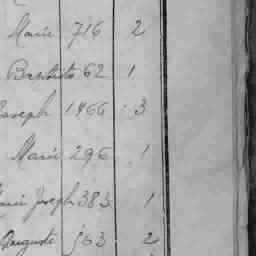 Marie 716 2
Baptiste 62 1
Joseph 1466 3
Marie 296 1
Marie Joseph 383 1
Auguste 563 2